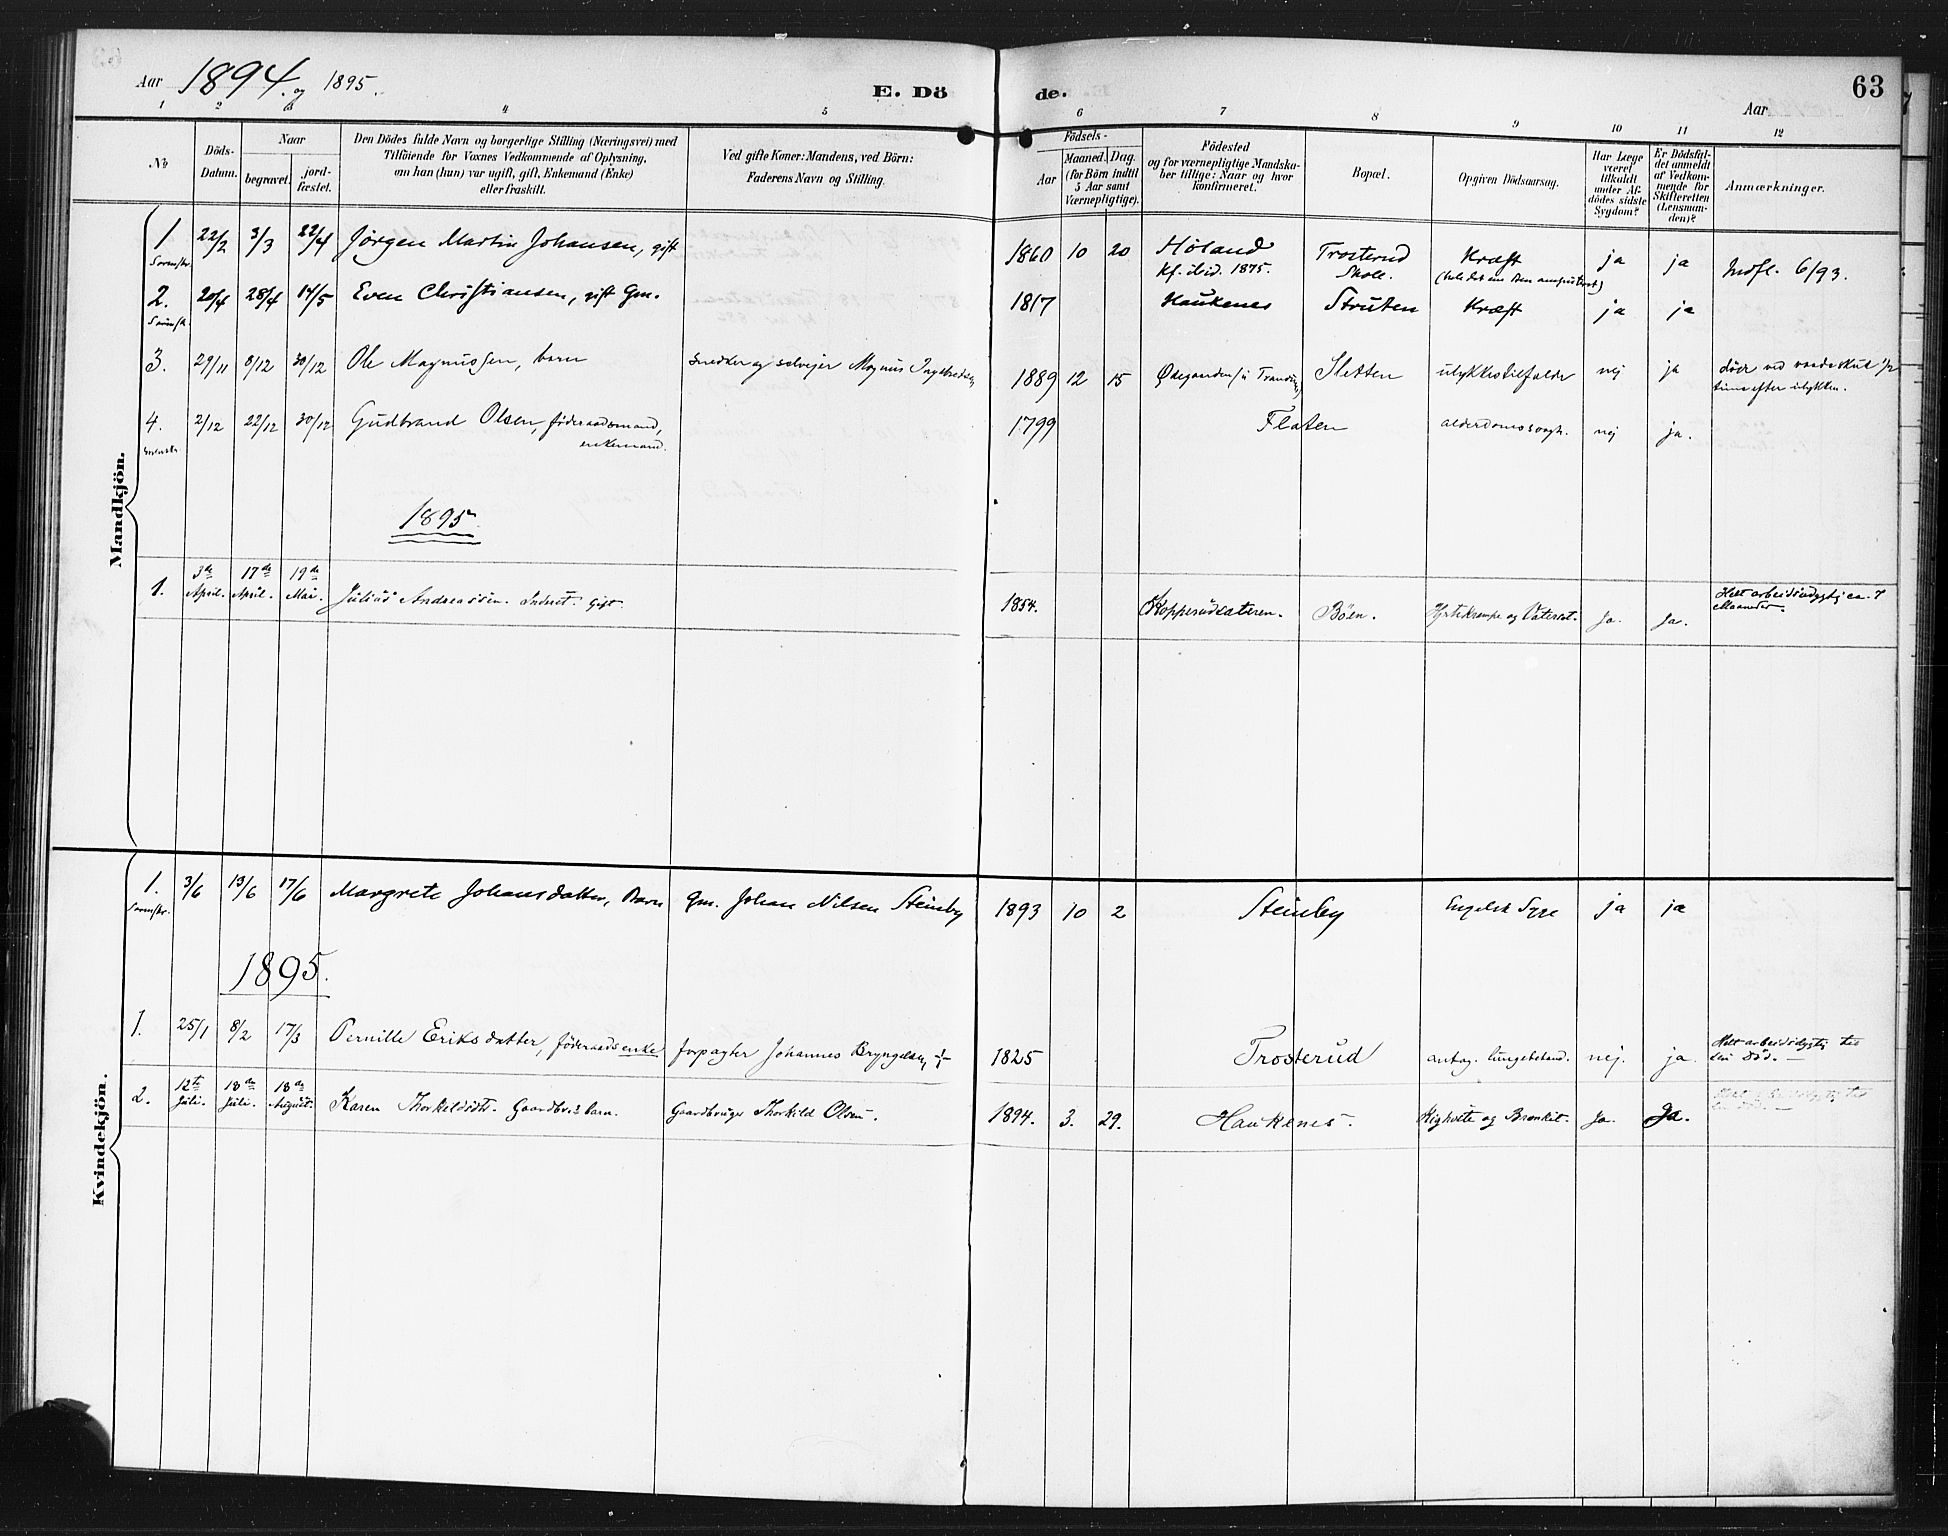 Aar 1894. og 1895.
E. Döde.
Aar
63
1 2 3 4 5 6 7 8 9 10 11 12
No
Döds-Datum.
Naar
begravet.
jord-fæstet.
Den Dödes fulde Navn og borgerlige Stilling (Næringsvei) med
Tilföiende for Voxnes Vedkommende af Oplysning,
om han (hun) var ugift, gift, Enkemand (Enke)
eller fraskilt.
Ved gifte Koner: Mandens, ved Börn:
Faderens Navn og Stilling.
Födsels-
Aar
Maaned. Dag.
(for Börn indtil
5 Aar samt
Værnepligtige).
Födested
og for værnepligtige Mandska-
ber tillige: Naar og hvor
konfirmeret.
Bopæl.
Opgiven Dödsaarsag.
Har Læge
været
tilkaldt
under Af-
dödes sidste
Sygdom?
Er Dödsfal-
det anmeldt
af Vedkom-
mende for
Skifteretten
(Lensman-
den)?
Anmærkninger.
Mandkjön.
1 22/2 3/3 22/4 Jørgen Martin Johansen, gift 1860 10 20 Høland Trosterud Kræft ja ja Indfl. 6/93.
Kf. ibid. 1875. Skole.
2. 20/4 28/4 14/5 Even Christiansen, gift Gm. 1817 Haukenes Struten Kræft ja ja
3. 29/11 8/12 30/12 Ole Magnussen, barn snedker og selvejer Magnus 1889 12 15 Sletten ulykkestilfælde nej ja døde ved vaadeskud 1/2
time efter ulykken.
4. 2/12 22/12 30/12 Gudbrand Olsen, føderaadsmand, 1799 Flaten nej ja.
enkemand.
1895.
1. 3de April. 17de April. 19de Mai. Julius Andreassen. Inderst. Gift. 1854. Kopperudsæteren. Bøen. Hjertekrampe og Vatersot. Ja. Ja. Helt arbeidsudygtig ca. 7
Maaneder.
Kvindekjön.
1. 3/6 13/6 17/6 Margrete Johansdatter, Barn Gm. Johan Nilsen Steinby 1893 10 2 Steinby Engelsk Syge ja ja
1895.
1. 25/1 8/2 17/3 Pernille Eriksdatter, føderaadsenke forpagter Johannes Bryngelsen, 1825 Trosterud antag. lungebetænd. nej. ja Helt arbeidsdygtig til
sin Död.
2. 12te Juli. 18de Juli. 18de August. Karen Thorkildsdtr. Gaardbr.s barn. Gaardbruger Thorkild Olsen. 1894. 3. 29. Haukenes. Kighoste og Bronkit. Ja. Ja.